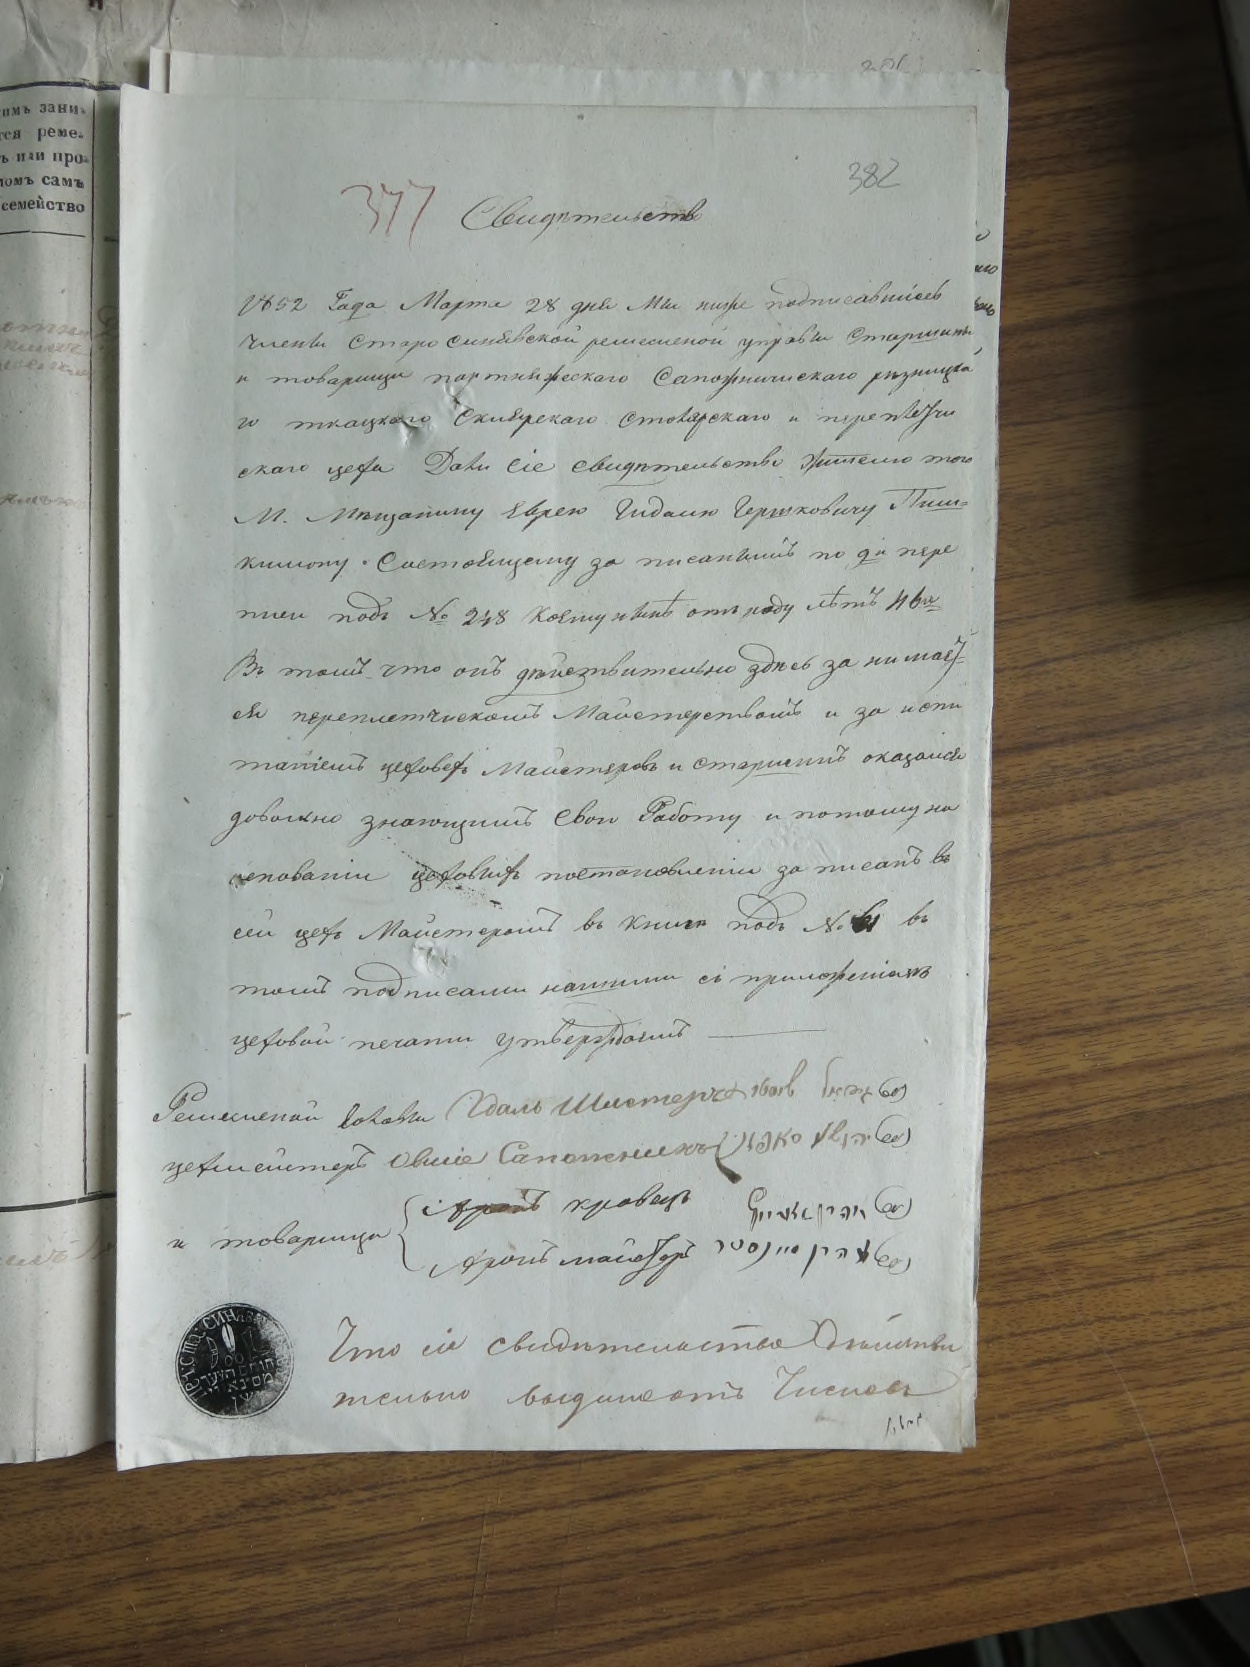 имъ зани-
тся реме-
ъ или про-
ломъ самъ
семейство
382
377
Свидѣтельство
1852 Года Марта 28 дня Мы ниже подписавшиесь
Члены Старо Синявской ремесленой управы Старшины
и товарищи портняжескаго Сапожническаго рѣзницка
го ткацкаго Скнярскаго Столярскаго и переплетчи
скаго цеха Дали сіе свидѣтельство жителю того
М. Мѣщанину Еврею Гидалю Гершковичу
Состоящему за писанымъ по 9й пере
писи подъ № 248 коему нынѣ отъ роду лѣтъ 46ть
Въ томъ что онъ дѣйствительно здѣсь за нимает
ся переплетчискимъ Майстерствомъ и за испи
таніемъ цеховыхъ Майстеровъ и старшинъ оказался
довольно знающимъ свою Работу и потому на
основаніи цеховыхъ постановленіи за писанъ въ
сей цехъ Майстеромъ въ книги подъ № въ
томъ подписами нашими съ приложеніемъ
цеховой печати утверждаемъ
Ремесленой Голова
цехмейстеръ Овшіе Сапожникъ
и товарищи Аронъ кровецъ
Аронъ майстеръ
Что сіе свидѣтельство Дѣйстви
тельно выдано отъ